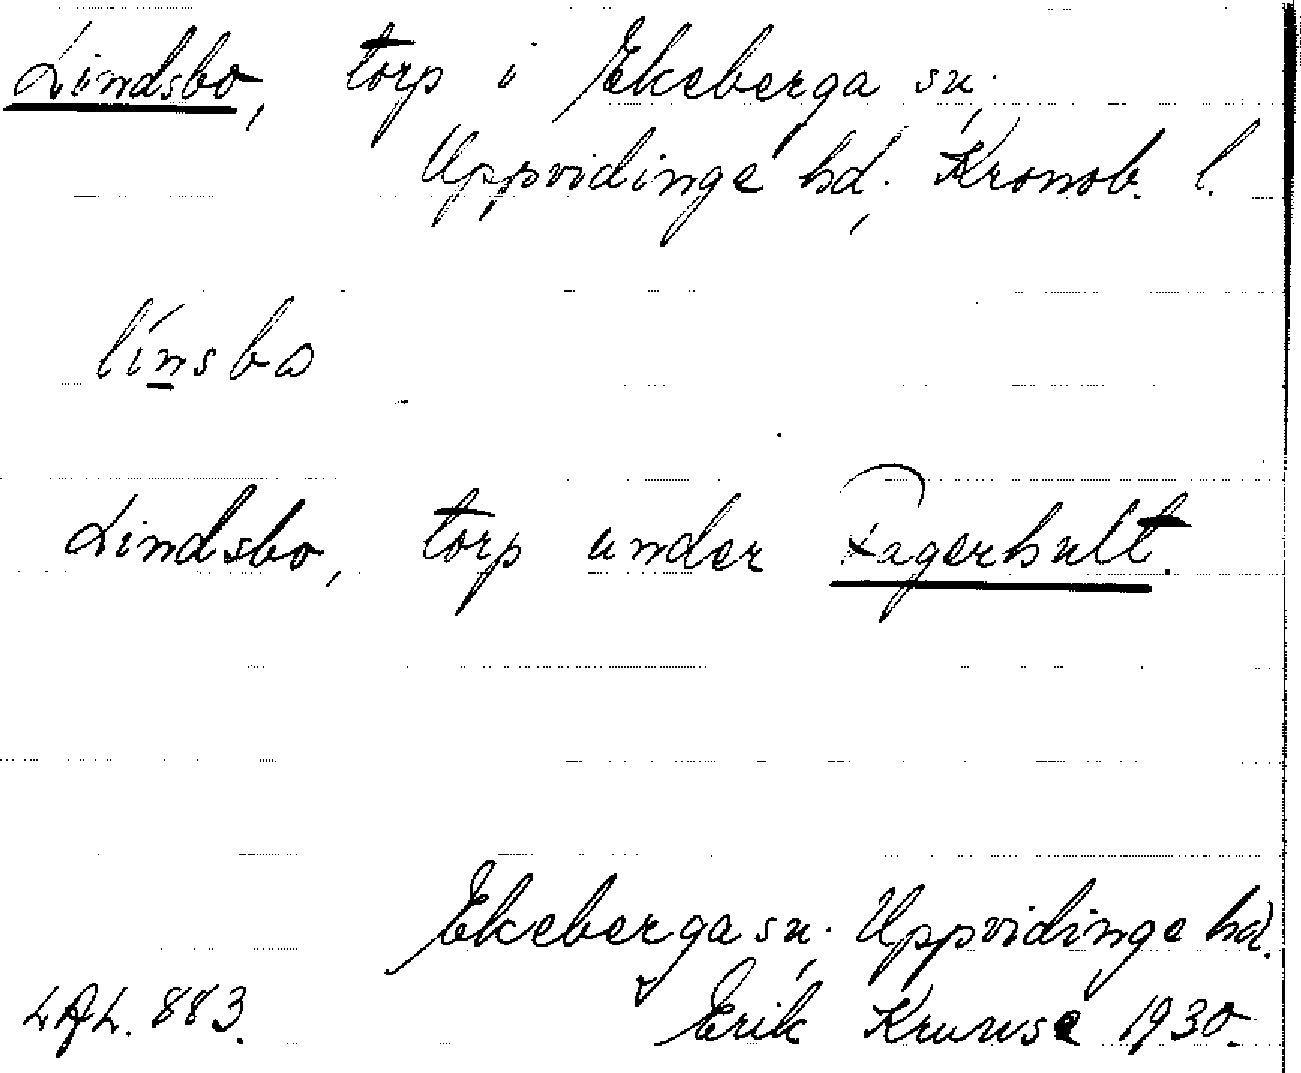 Lindsbo, torp i Ekeberga sn.,
Uppvidinge hd., Kronob. l.
línsbo
Lindsbo, torp under Fagerhult.
Ekeberga sn., Uppvidinge hd.
LAL. 883. Erik Kruuse 1930.